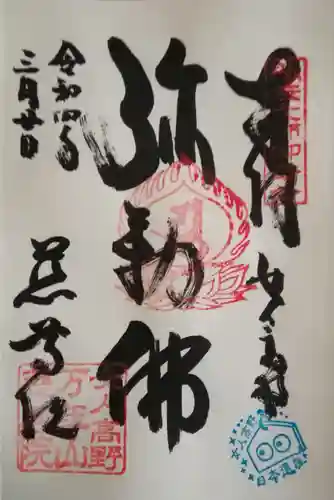 奉拝 女人高野
弥勒佛
令和四年
三月廿日
慈尊院
女人高野
万年山
慈尊院
女人高野
日本遺産